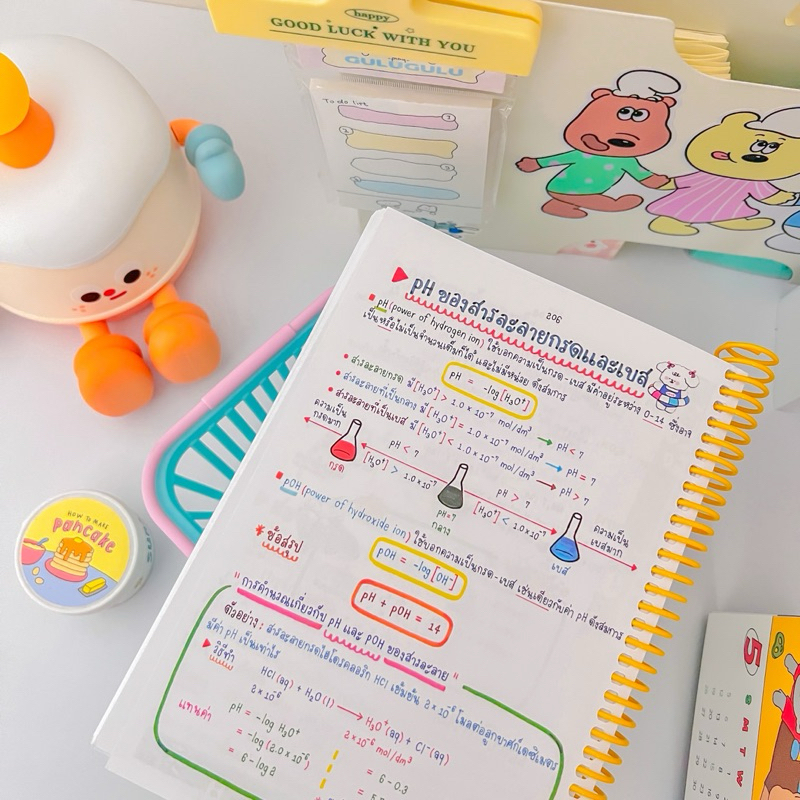 happy
GOOD LUCK WITH YOU
GULUGULU
To do list
HOW TO MAKE
pancake
206
pH ของสารละลายกรดและเบส
pH (power of hydrogen ion) ใช้บอกความเป็นกรด-เบส มีค่าอยู่ระหว่าง 0-14 ซึ่งอาจ
เป็น หรือไม่เป็นจำนวนเต็มก็ได้ และไม่มีหน่วย ดังสมการ
pH = -log [H₃O⁺]
สารละลายกรด มี [H₃O⁺] > 1.0 × 10⁻⁷ mol/dm³ → pH < 7
สารละลายที่เป็นกลาง มี [H₃O⁺] = 1.0 × 10⁻⁷ mol/dm³ → pH = 7
สารละลายที่เป็นเบส มี [H₃O⁺] < 1.0 × 10⁻⁷ mol/dm³ → pH > 7
ความเป็น
กรดมาก
pH < 7
[H₃O⁺] > 1.0×10⁻⁷
กรด
pH=7
กลาง
pH > 7
[H₃O⁺] < 1.0×10⁻⁷
ความเป็น
เบสมาก
เบส
pOH (power of hydroxide ion) ใช้บอกความเป็นกรด-เบส เช่นเดียวกับค่า pH ดังสมการ
pOH = -log [OH⁻]
ข้อสรุป
pH + pOH = 14
"การคำนวณเกี่ยวกับ pH และ pOH ของสารละลาย"
ตัวอย่าง : สารละลายกรดไฮโดรคลอริก HCl เข้มข้น 2×10⁻⁶ โมลต่อลูกบาศก์เดซิเมตร
มีค่า pH เป็นเท่าไร
วิธีทำ
HCl (aq) + H₂O (l) → H₃O⁺(aq) + Cl⁻(aq)
2×10⁻⁶
2×10⁻⁶ mol/dm³
แทนค่า
pH = -log H₃O⁺
= -log (2.0 × 10⁻⁶)
= 6 - log 2
= 6 - 0.3
5
S M T W